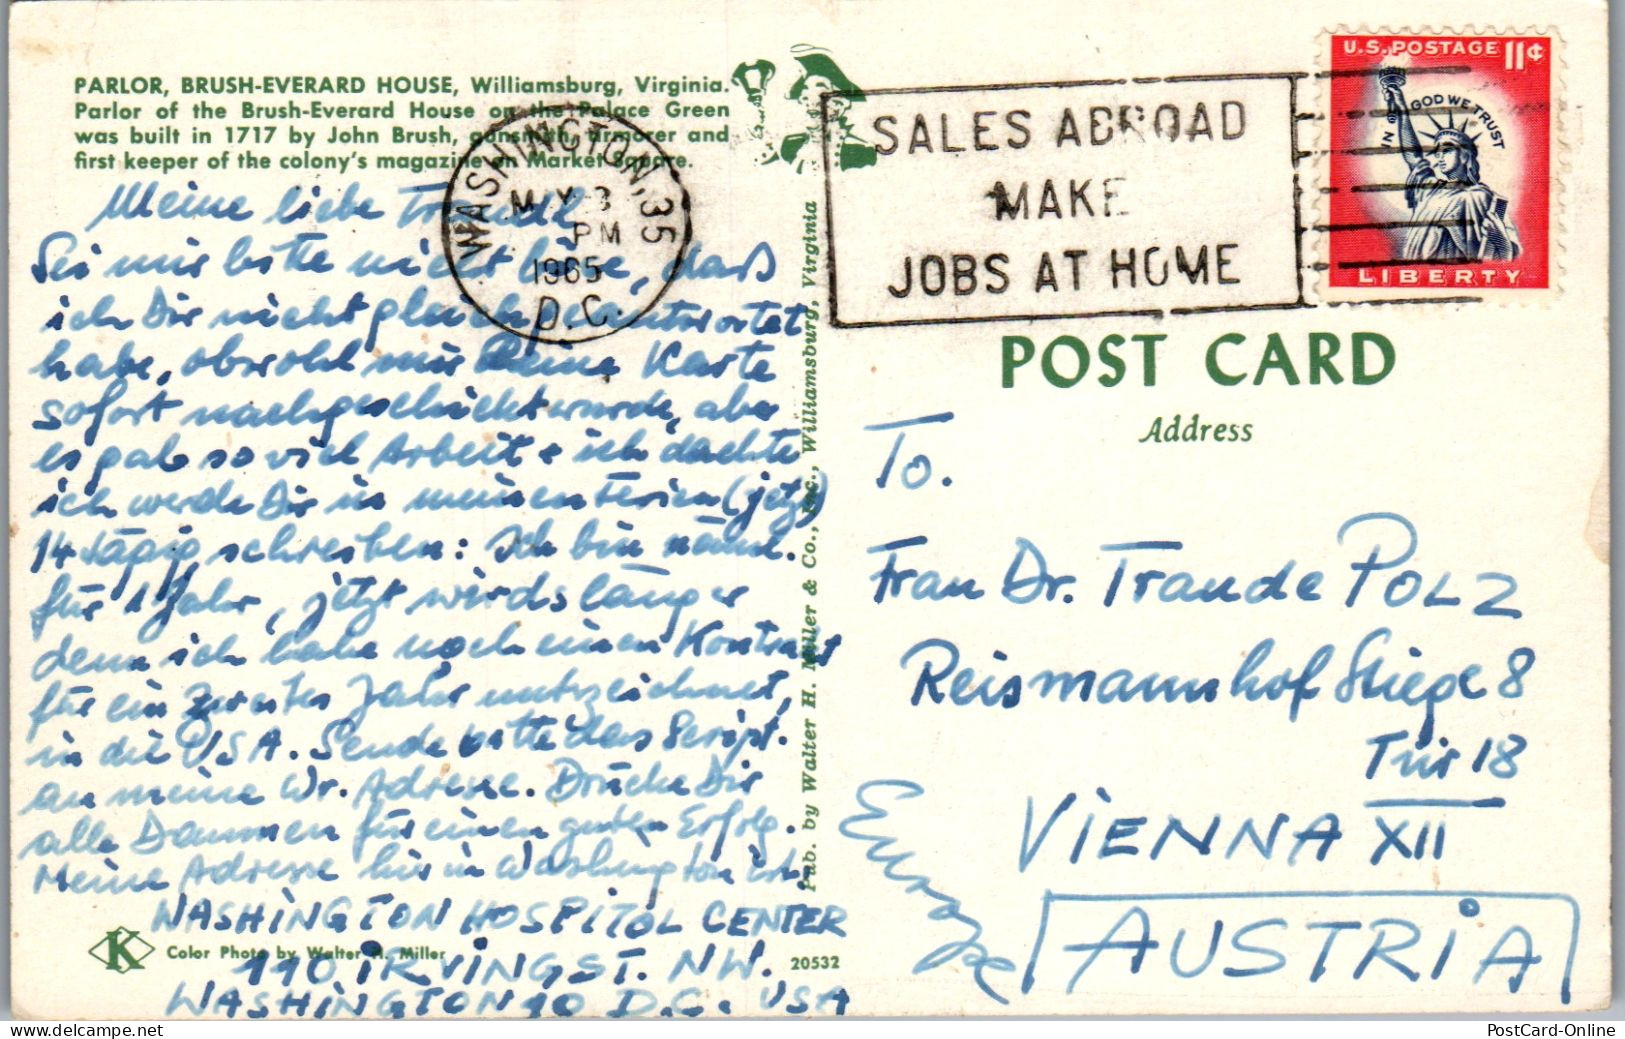 PARLOR, BRUSH-EVERARD HOUSE, Williamsburg, Virginia.
Parlor of the Brush-Everard House on the Palace Green
was built in 1717 by John Brush, gunsmith, armorer and
first keeper of the colony's magazine on Market Square.
Meine liebe Traudl
Sei mir bitte nicht böse, daß
ich Dir nicht gleich geantwortet
habe, obwohl mir Deine Karte
sofort nachgeschickt wurde, aber
es gab so viel Arbeit + ich dachte
ich werde Dir in meinen Ferien (jetzt)
14 tägig schreiben: Ich bin näml.
für 1 Jahr, jetzt wirds länger
denn ich habe noch einen Kontrakt
für ein zweites Jahr unterzeichnet,
in den USA. Sende bitte das Script.
an meine Wr. Adresse. Drücke Dir
alle Daumen für einen guten Erfolg.
Meine Adresse hier in Washington ist.
WASHINGTON HOSPITOL CENTER
110 IRVINGST. NW.
WASHINGTON 10 D.C. USA
K
Color Photo by Walter H. Miller
20532
Pub. by Walter H. Miller & Co., Inc., Williamsburg, Virginia
WASHINGTON, 35
MAY 3
PM
1965
D.C.
SALES ABROAD
MAKE
JOBS AT HOME
U.S. POSTAGE 11¢
IN GOD WE TRUST
LIBERTY
POST CARD
Address
To.
Frau Dr. Traude POLZ
Reismannhof Stiege 8
Tür 18
VIENNA XII
Europe
AUSTRIA
PostCard-Online